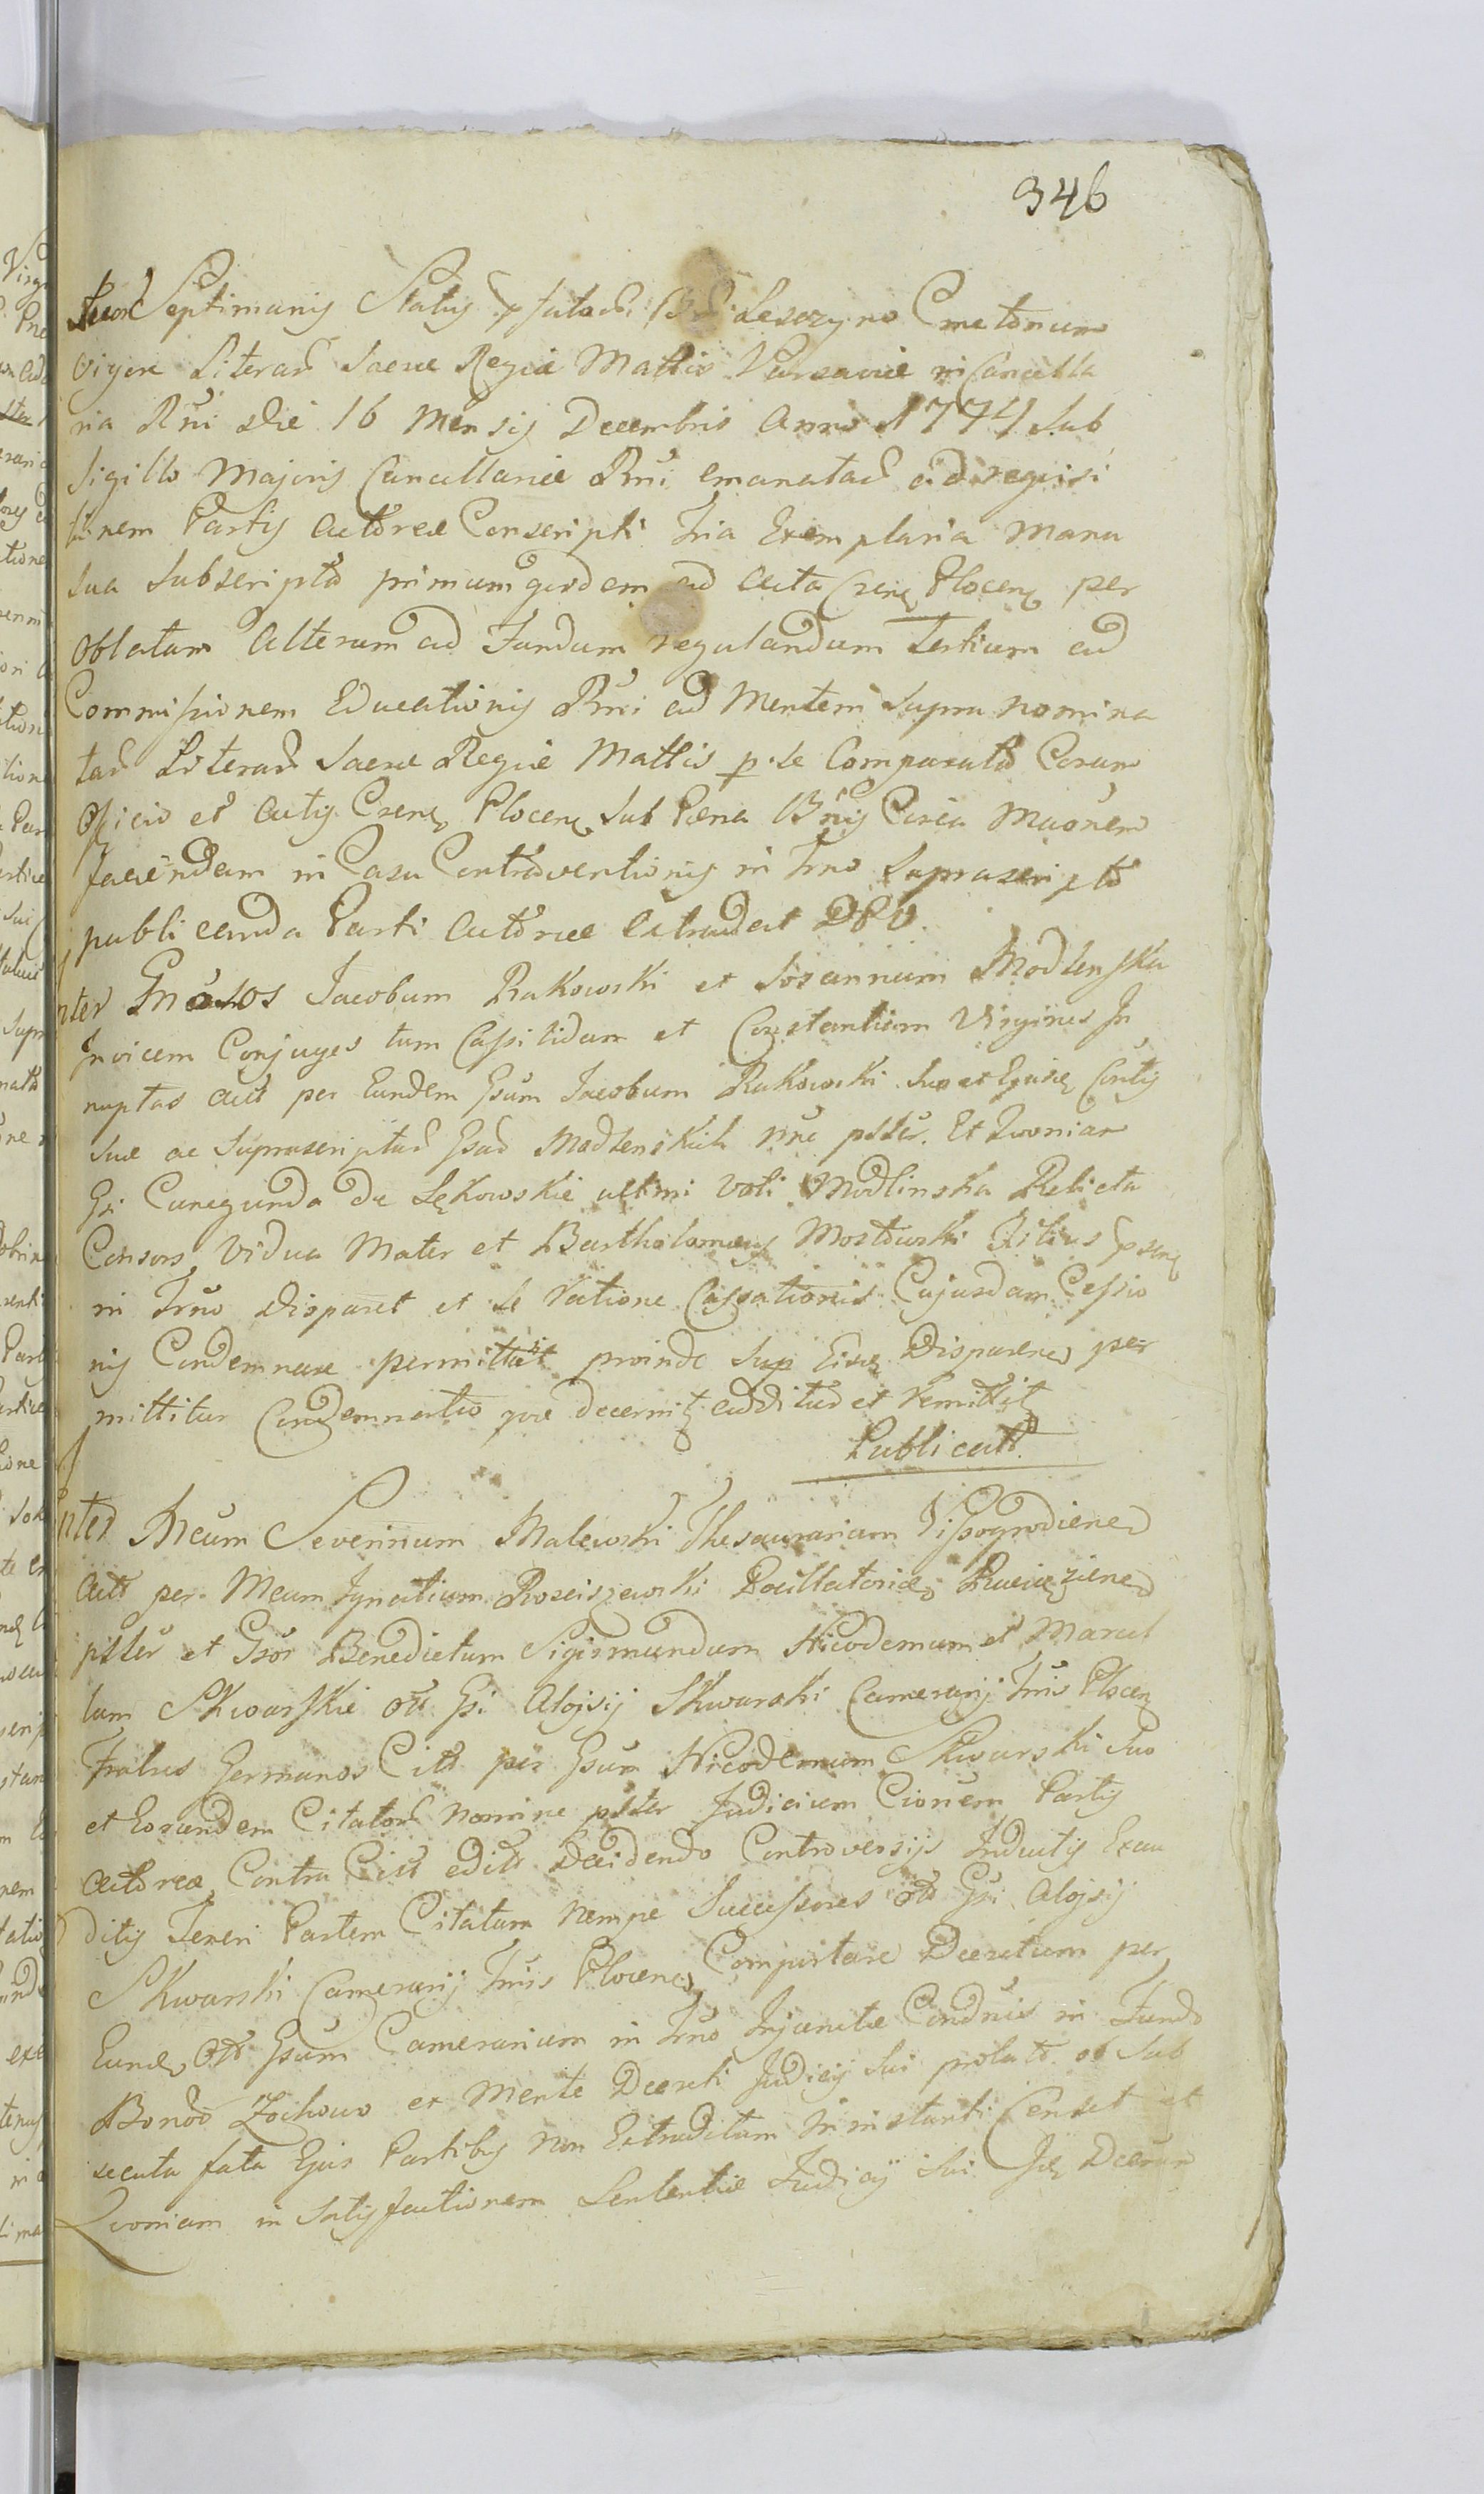 346
Septimanis Status Leszczyno Cmetonum
Vigore Literar Sacrae Regiae Mattis Varsaviae in Cancella
ria Rni Die 16 Mensis Decembris Anno 1774 Sub
Sigillo Majoris Cancellariae Rni emanatar ad requisi
tionem Partis Actoreae Conscripti Tria Exemplaria Manu
Sua Subscripta primum quidem ad Acta Plocen per
Oblatam Alterum ad Fundum regulandum Tertium ad
Commissionem Educationis Rni ad Mentem Supra nomina
tar Literar Sacrae Regiae Mattis p. se Comparato Coram
Officio et Actis Plocen Sub Paena Bnis Circa
faciendam in Casu Controventionis in Trno Suprascripto
publicanda Parti Actoreae Extradat DPV.
Inter Gnosos Jacobum Rakowski et Sosannam Modlenska
Invicem Conjuges tum Cassildam et Constantiam Virgines In
nuptas Act per Eundem Gsum Jacobum Rakowski Suo et
Suae ac Suprascriptar Gsar Modlenskich pster. Et Quoniam
Gsi Cunegunda de Lękowskie ultimi Voti Modlinska Relicta
Consors Vidua Mater et Bartholomaeus Mostowski Filius
in Trno Disparet et Se Ratione Cassationis Cujusdam Cessio
nis Condemnare permittit proinde Sup Eisd Disparend per
mittitur Condemnatio quae decernit additur et remittit
Publicatt
Inter Mcum Severinum Malewski Thesaurarium Vissogrodiens
Actt per Mcum Ignatium Rosciszewski Pocillatorid
pster et Gsos Benedictum Sigismundum Nicodemum et Marcel
lum Skwarskie ott Gsi Aloysij Skwarski Camerarij Trris Plocen
Fratres Germanos Citt per Gsum Nicodemum Skwarski Suo
et Eorundem Citator Nomine pster Judicium Cionem Partis
Actoreae Contra Citt editt Decidendo Controversijs Inductis Exau
ditis Teneri Partem Citatam Nempe Successores ott Gsi Aloysij
Skwarski Camerarij Trris Plocens Comportare Decretum per
Eund Ott Gsum Camerarium in Trno Injunctae Condnis in Fundo
Bonor Zochowo ex Mente Decreti Judicij Sui prolatt ob Sub
secuta fata Ejus Partibus non Extraditum in instanti Censet et
Quoniam in Satisfactionem Sententiae Judicij Sui